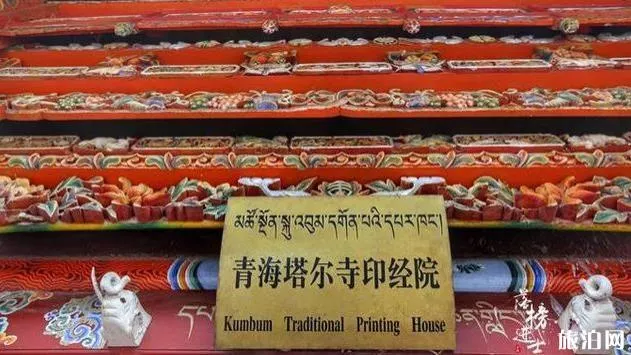 མཚོ་སྔོན་སྐུ་འབུམ་དགོན་པའི་དཔར་ཁང་།
青海塔尔寺印经院
Kumbum Traditional Printing House
落榜进士
旅泊网